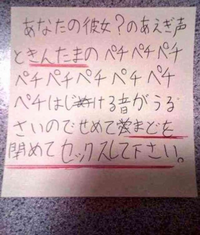 あなたの彼女?のあえぎ声
ときんたまのペチペチペチ
ペチペチペチペチペチ
ペチはじける音がうる
さいのでせめて窓まどを
閉めてセックスして下さい。